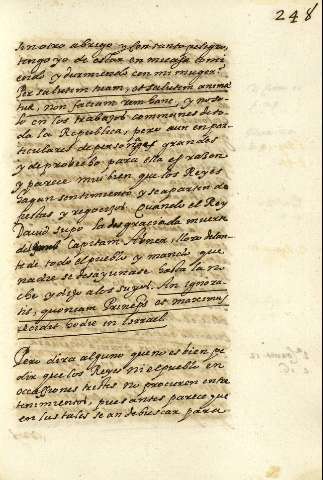 248
sin otro abrigo y con tanto peligro,
tengo yo de estar en mi casa comi
endo y durmiendo con mi muger.
Per salutem tuam, et salutem animæ
tuæ, non faciam rem hanc, y no so
lo en los trabajos communes de to
da la Republica, pero aun en par
ticulares de personages grandes
y de probecho para ella es raçon
y parece mui bien que los Reyes
hagan sentimiento, y se aparten de
fiestas y regocijos. Quando el Rey
David supo la desgraciada muerte
del Capitam Abnea, lloro delan
te de todo el pueblo y mandò que
nadie se desayunase hasta la no
che y dijo a los suyos. An ignora
tis, quoniam Princeps et maximus
cecidit hodie in Israel.
Pero dira alguno que no es bien pe
dir que los Reyes ni el pueblo en
occassiones tristes no procuren entre
tenimientos, pues antes parece que
en las tales se an de buscar para